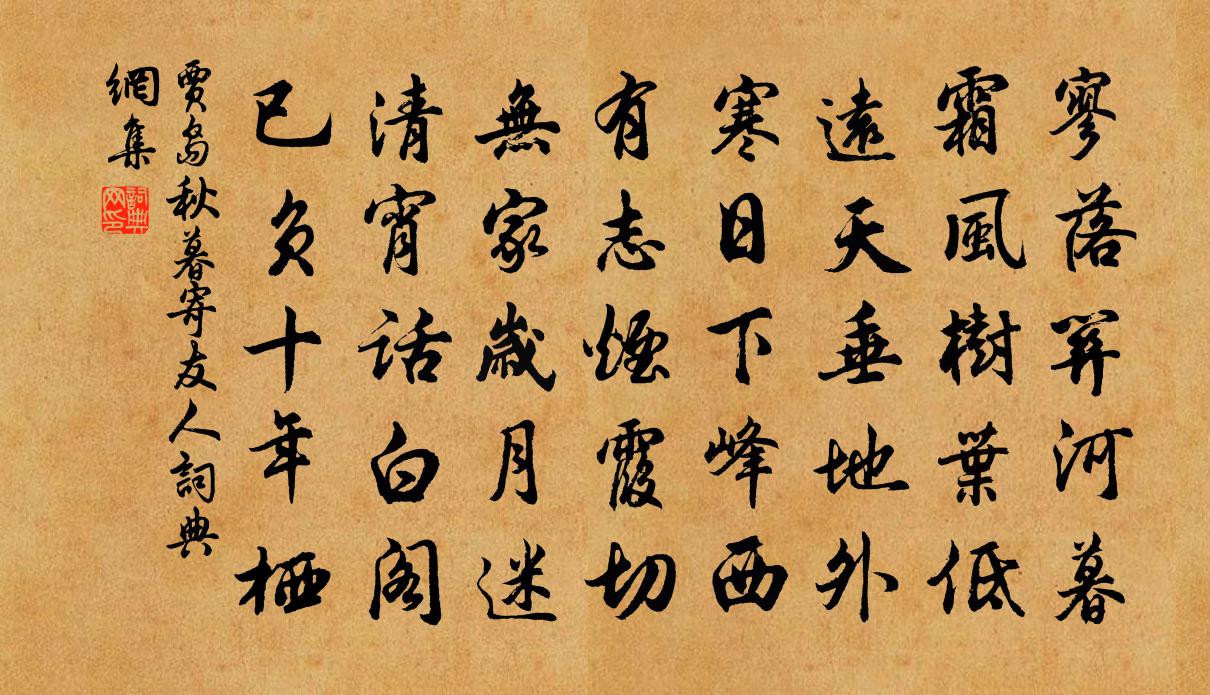 寥落關河暮
霜風樹葉低
遠天垂地外
寒日下峰西
有志煙霞切
無家歲月迷
清宵話白閣
已負十年栖
賈島秋暮寄友人詞典
網集
詞典网印